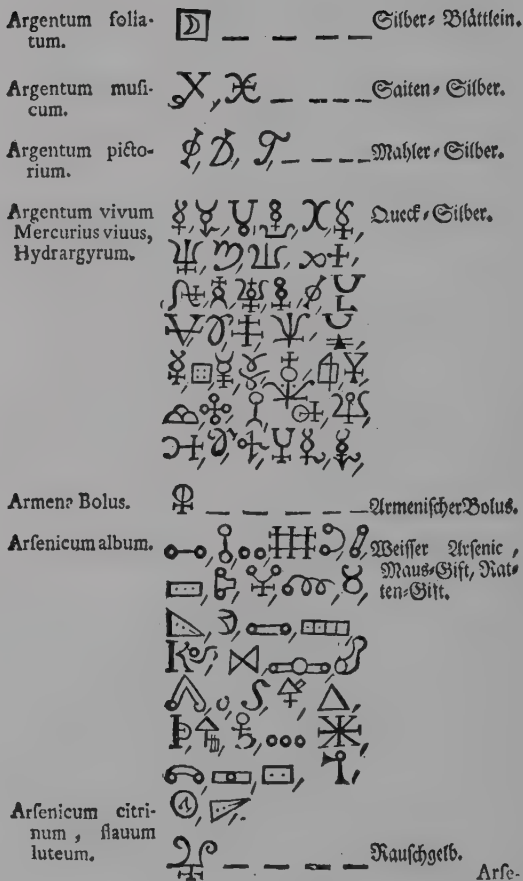 Argentum folia- Silber- Blättlein.
tum.
Argentum muſi- Saiten- Silber.
cum.
Argentum picto- Mahler- Silber.
rium.
Argentum vivum Queck- Silber.
Mercurius viuus,
Hydrargyrum.
Armena Bolus. Armeniſcher Bolus.
Arſenicum album. Weiſſer Arſenic,
Maus-Gift, Rat-
ten-Gift.
Arſenicum citri-
num, flauum
luteum. Rauſchgelb.
Arſe-